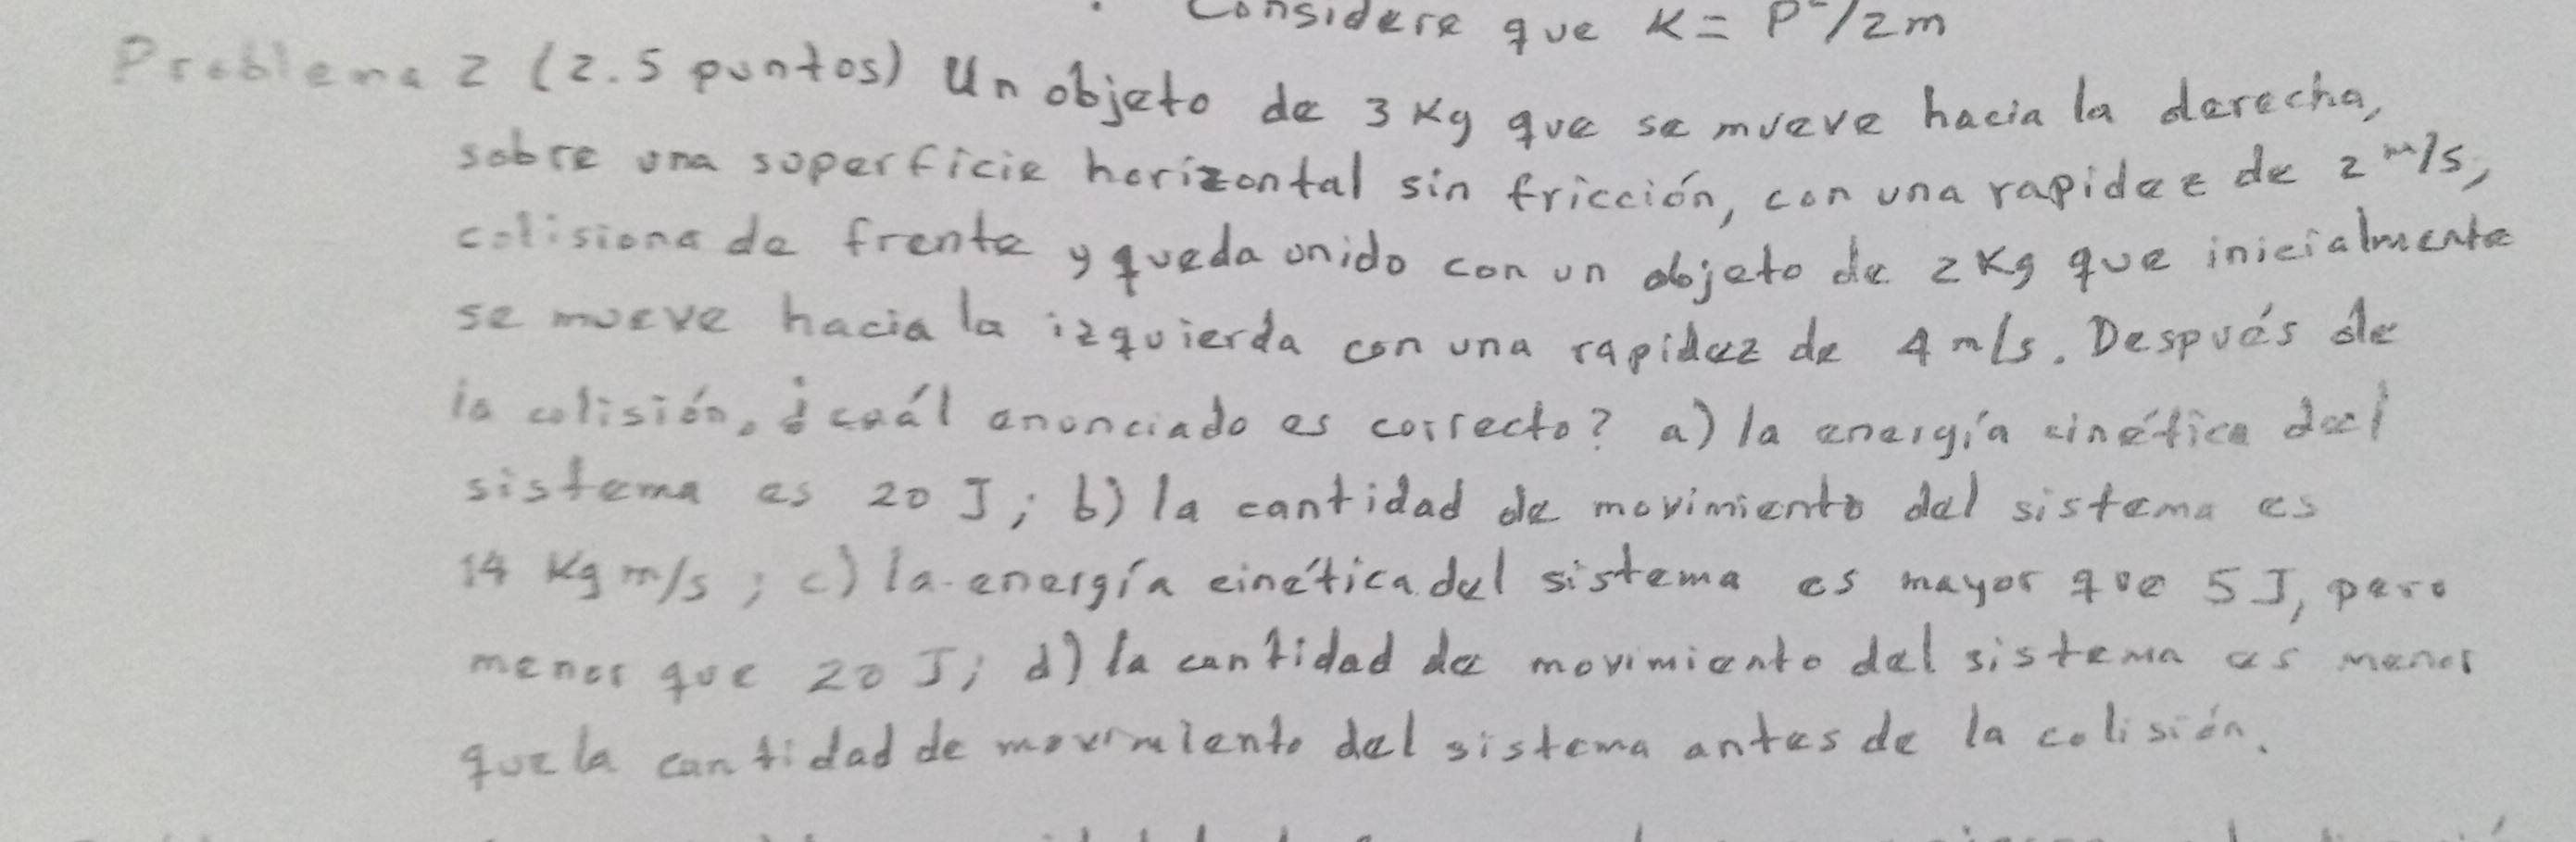 Considere que K = P²/2m
Problema 2 (2.5 puntos) Un objeto de 3 Kg que se mueve hacia la derecha,
sobre una superficie horizontal sin fricción, con una rapidez de 2 m/s,
colisiona de frente y queda unido con un objeto de 2 Kg que inicialmente
se mueve hacia la izquierda con una rapidez de 4 m/s. Después de
la colisión, ¿cuál enunciado es correcto? a) la energía cinética del
sistema es 20 J; b) la cantidad de movimiento del sistema es
14 Kg m/s; c) la energía cinética del sistema es mayor que 5 J, pero
menor que 20 J; d) la cantidad de movimiento del sistema es menor
que la cantidad de movimiento del sistema antes de la colisión.